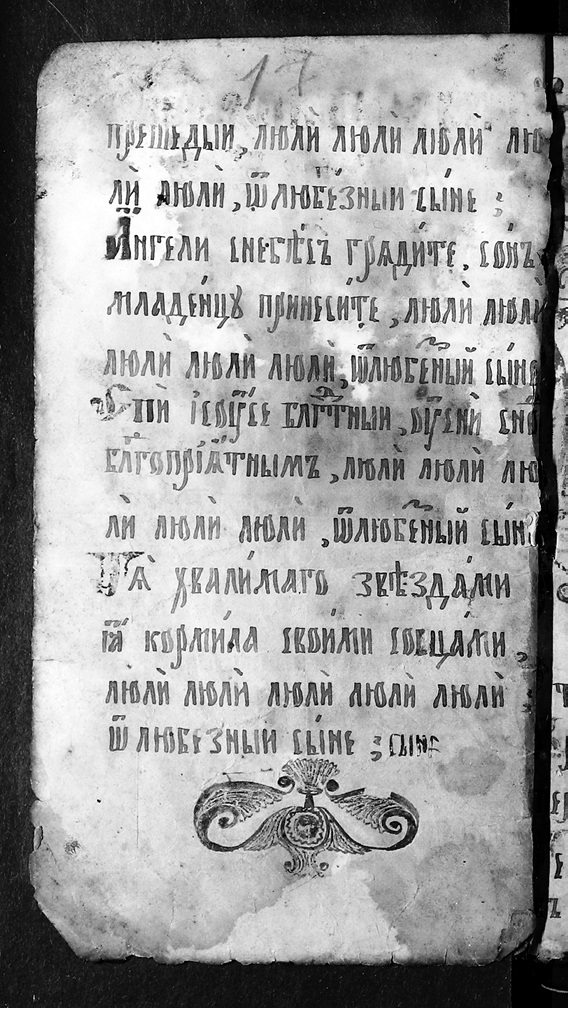 17
прешедый, люлй люлй люлй лю
лй люлй, ѿлюбе́зный сы́не ;
А҆́нгели снебе́съ гряди́те, со́нъ
младе́нцꙋ принеси́те, люлй люлй
люлй люлй люлй, ѿлюбе́ный сы́не
Спѝ і҆сꙋ́се бл҃гтный, ᲂу҆снѝ сно
бл҃гопрїѧ́тнымъ, люлй люлй лю
лй люлй люлй, ѿлюбе́ный сы́не
Тѧ̀ хвали́маго звѣзда́ми
ꙗ҆̀ корми́ла свои́ми сосца́ми,
люлй люлй люлй люлй люлй ;
ѿ любезный сы́не ; сыне